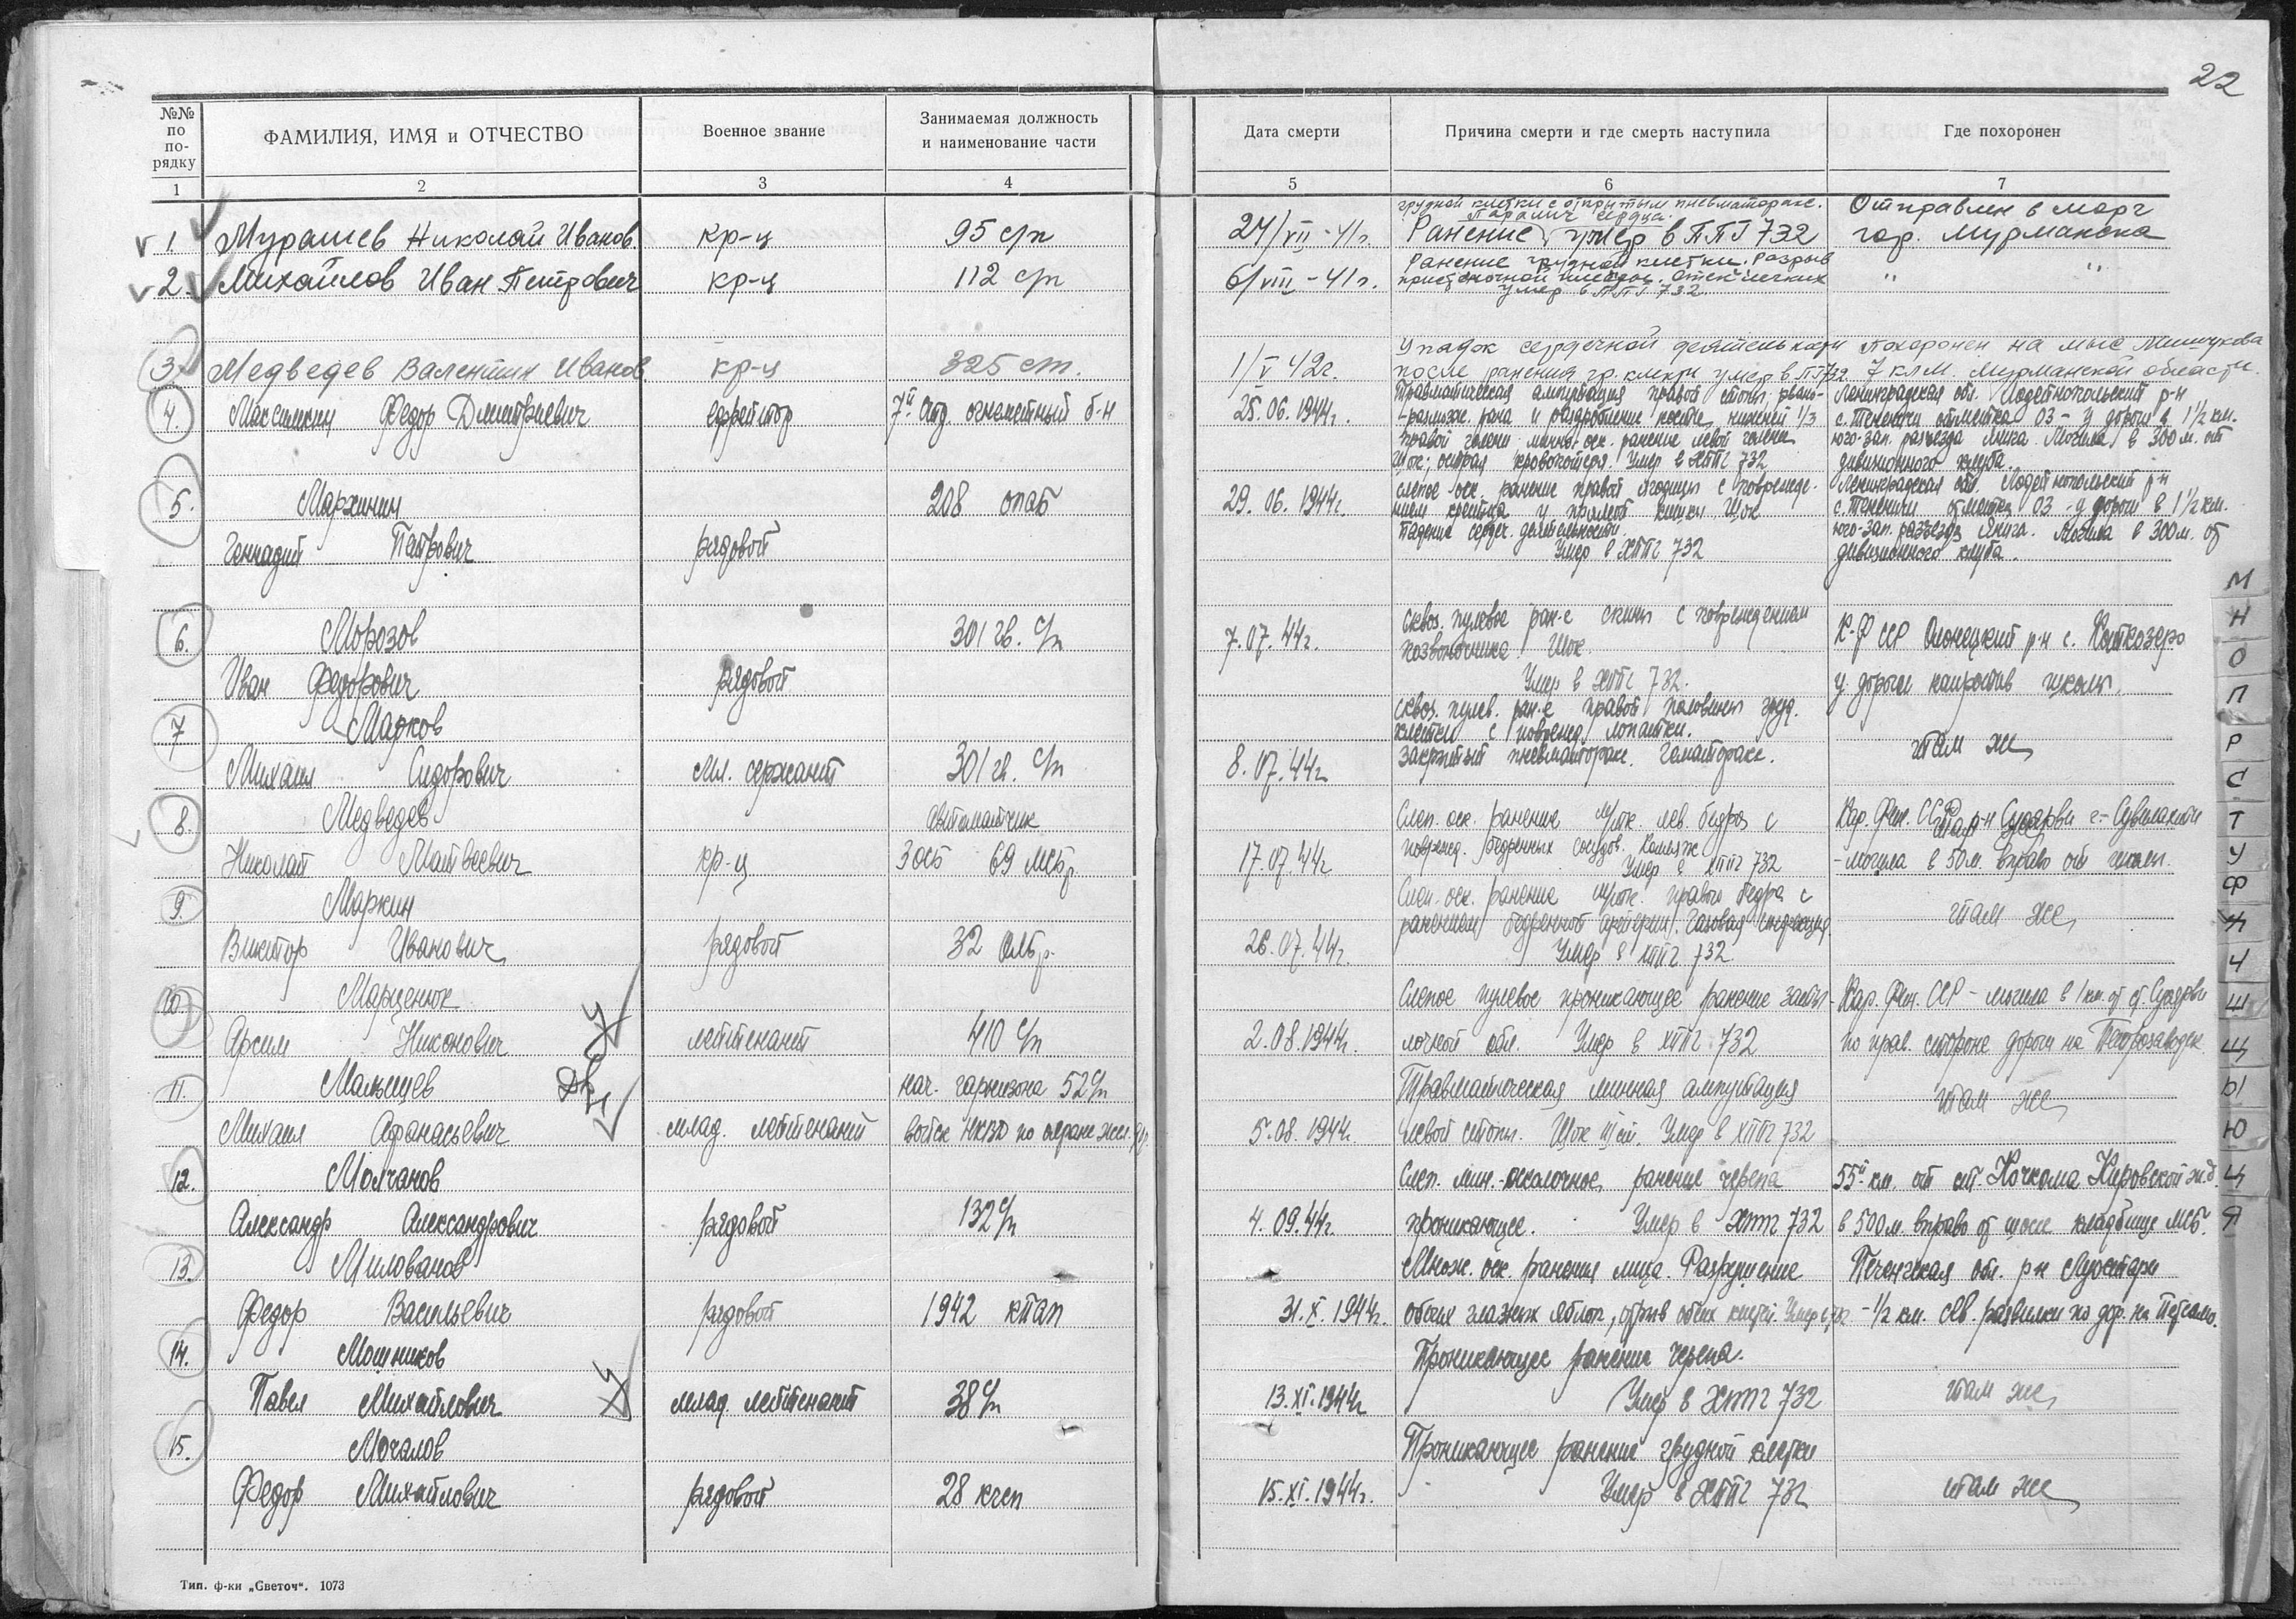 22
№№ по по-рядку
ФАМИЛИЯ, ИМЯ и ОТЧЕСТВО
Военное звание
Занимаемая должность и наименование части
Дата смерти
Причина смерти и где смерть наступила
Где похоронен
1 2 3 4 5 6 7
грудной клетки с открытым пневматоракс.
Паралич сердца.
1. Мурашев Николай Иванов. кр-ц 95 с/п 24/VII-41г. Ранение, умер в ППГ 732
Отправлен в морг
гор. Мурманска
Ранение грудной клетки. Разрыв
2. Михайлов Иван Петрович кр-ц 112 с/п 6/VIII-41г. пристеночной плевры. Отек легких
умер в ППГ 732
" "
3. Медведев Валентин Иванов. кр-ц 325 сп. 1/V 42г.
Упадок сердечной деятельности
после ранения гр. клетки умер в ПГ732.
Похоронен на мыс Мишукова
7 клм. Мурманской области.
4. Максимкин Федор Дмитриевич ефрейтор 7й отд. огнеметный б-н 25.06.1944г.
Травматическая ампутация правой стопы, рвано-
-размозж. рана и раздробление кости нижней 1/3
правой голени минно-оск. ранение левой голени
Шок; острая кровопотеря. Умер в ХППГ 732
Ленинградская обл. Лодейнопольский р-н
с. Тененичи отметка 03 - у дороги в 1 1/2 км.
юго-зап. разъезда Янига. Могила в 300 м. от
дивизионного клуба.
5. Мархинин
Геннадий Петрович рядовой 208 опаб 29.06.1944г.
слепое оск. ранение правой ягодицы с поврежде-
нием крестца и прямой кишки Шок
Падение сердеч. деятельности.
Умер в ХППГ 732
Ленинградская обл. Лодейнопольский р-н
с. Тененичи отметка 03 - у дороги в 1 1/2 км.
юго-зап. разъезда Янига. Могила в 300 м. от
дивизионного клуба.
6. Морозов
Иван Федорович рядовой 301 гв. с/п 7.07.44г.
Сквоз. пулевое ран-е спины с повреждением
позвоночника. Шок.
Умер в ХППГ 732.
К-Ф ССР Олонецкий р-н с. Коткозеро
у дороги напротив школы.
7 Марков
Михаил Сидорович мл. сержант 301 гв. с/п 8.07.44г.
сквоз. пулев. ран-е правой половины груд.
клетки с поврежд. лопатки.
Закрытый пневматоракс. Гематоракс.
там же
8. Медведев
Николай Матвеевич кр-ц автоматчик
3 осб 69 мсбр. 17.07.44г
Слеп. оск. ранение м/тк. лев. бедра с
поврежд. бедренных сосудов. Коллапс
Умер в ХППГ 732
Кар. Фин. ССР р-н Суоярви
- могила в 50 м. вправо от школы.
9. Маркин
Виктор Иванович рядовой 32 олбр. 26.07.44г.
Слеп. оск. ранение м/тк. правого бедра с
ранением бедренной артерии. Газовая инфекция
Умер в ХППГ 732
там же
10 Марценюк
Арсим Никонович лейтенант 410 с/п 2.08.1944г.
Слепое пулевое проникающее ранение заты-
лочной обл. Умер в ХППГ 732
Кар. Фин. ССР - могила в 1 км. от ст. Суоярви
по прав. стороне дороги на Петрозаводск
11. Малышев
Михаил Афанасьевич млад. лейтенант
нач. гарнизона 52 с/п
войск НКВД по охране жел. др 5.08.1944г.
Травматическая минная ампутация
левой стопы. Шок III ст. Умер в ХППГ 732
там же
12. Молчанов
Александр Александрович рядовой 132 с/п 4.09.44г.
Слеп. мин.-осколочное ранение черепа
проникающее. Умер в ХППГ 732
55й км. от ст. Кочкома Кировской ж.д.
в 500 м. вправо от шоссе кладбище МСБ.
13. Милованов
Федор Васильевич рядовой 1942 ктап 31.X.1944г.
Множ. оск. ранения лица. Разрушение
обоих глазных яблок, отрыв обеих кистей. Умер в 732
Печенгская обл. р-н Луостари
- 1/2 км. Св. развилки по дор. на Петсамо.
14. Мошников
Павел Михайлович млад. лейтенант 38 с/п 13.XI.1944г
Проникающее ранение черепа.
Умер в ХППГ 732
там же
15. Мочалов
Федор Михайлович рядовой 28 кгсп 15.XI.1944г.
Проникающее ранение грудной клетки
Умер в ХППГ 732
там же
М
Н
О
П
Р
С
Т
У
Ф
Х
Ч
Ш
Щ
Ы
Ю
Ц
Я
Тип. ф-ки „Светоч“. 1073